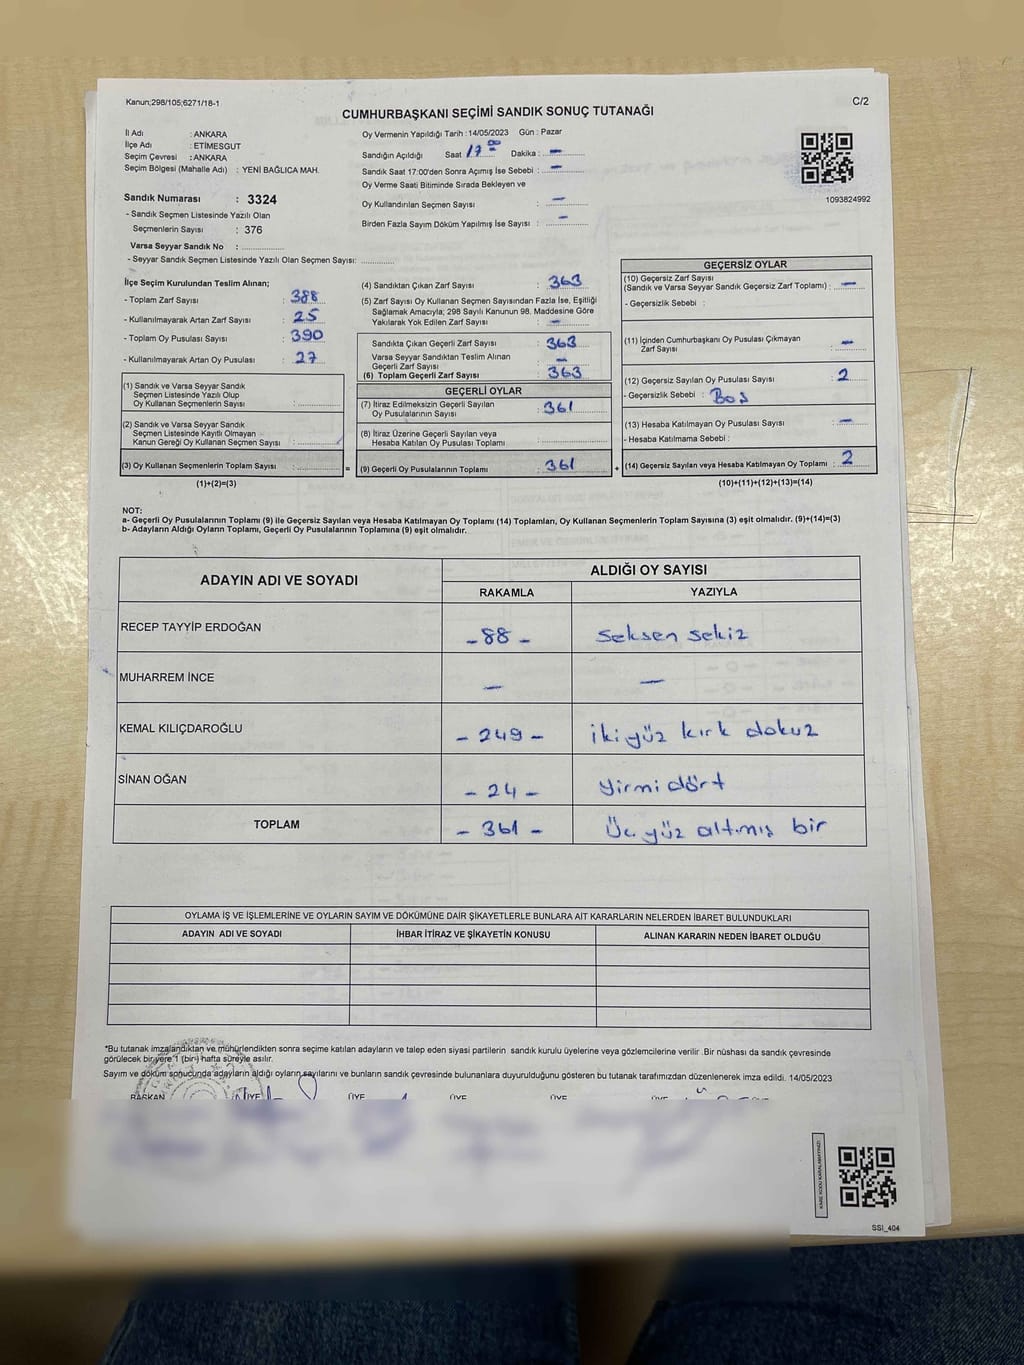 Kanun;298/105;6271/18-1
C/2
CUMHURBAŞKANI SEÇİMİ SANDIK SONUÇ TUTANAĞI
İl Adı : ANKARA
İlçe Adı : ETİMESGUT
Seçim Çevresi : ANKARA
Seçim Bölgesi (Mahalle Adı) : YENİ BAĞLICA MAH.
Sandık Numarası : 3324
- Sandık Seçmen Listesinde Yazılı Olan
Seçmenlerin Sayısı : 376
Varsa Seyyar Sandık No :
- Seyyar Sandık Seçmen Listesinde Yazılı Olan Seçmen Sayısı:
Oy Vermenin Yapıldığı Tarih : 14/05/2023 Gün : Pazar
Sandığın Açıldığı Saat 17 00 Dakika : —
Sandık Saat 17:00'den Sonra Açımış İse Sebebi : —
Oy Verme Saati Bitiminde Sırada Bekleyen ve
Oy Kullandırılan Seçmen Sayısı : —
Birden Fazla Sayım Döküm Yapılmış İse Sayısı : —
1093824992
İlçe Seçim Kurulundan Teslim Alınan;
- Toplam Zarf Sayısı : 388
- Kullanılmayarak Artan Zarf Sayısı : 25
- Toplam Oy Pusulası Sayısı : 390
- Kullanılmayarak Artan Oy Pusulası : 27
(1) Sandık ve Varsa Seyyar Sandık
Seçmen Listesinde Yazılı Olup
Oy Kullanan Seçmenlerin Sayısı :
(2) Sandık ve Varsa Seyyar Sandık
Seçmen Listesinde Kayıtlı Olmayan
Kanun Gereği Oy Kullanan Seçmen Sayısı :
(3) Oy Kullanan Seçmenlerin Toplam Sayısı : =
(1)+(2)=(3)
(4) Sandıktan Çıkan Zarf Sayısı : 363
(5) Zarf Sayısı Oy Kullanan Seçmen Sayısından Fazla İse, Eşitliği
Sağlamak Amacıyla; 298 Sayılı Kanunun 98. Maddesine Göre
Yakılarak Yok Edilen Zarf Sayısı : —
Sandıkta Çıkan Geçerli Zarf Sayısı : 363
Varsa Seyyar Sandıktan Teslim Alınan
Geçerli Zarf Sayısı : —
(6) Toplam Geçerli Zarf Sayısı : 363
GEÇERLİ OYLAR
(7) İtiraz Edilmeksizin Geçerli Sayılan
Oy Pusulalarının Sayısı : 361
(8) İtiraz Üzerine Geçerli Sayılan veya
Hesaba Katılan Oy Pusulası Toplamı :
(9) Geçerli Oy Pusulalarının Toplamı : 361 +
GEÇERSİZ OYLAR
(10) Geçersiz Zarf Sayısı
(Sandık ve Varsa Seyyar Sandık Geçersiz Zarf Toplamı) : —
- Geçersizlik Sebebi :
(11) İçinden Cumhurbaşkanı Oy Pusulası Çıkmayan
Zarf Sayısı : —
(12) Geçersiz Sayılan Oy Pusulası Sayısı : 2
- Geçersizlik Sebebi : Boş
(13) Hesaba Katılmayan Oy Pusulası Sayısı : —
- Hesaba Katılmama Sebebi :
(14) Geçersiz Sayılan veya Hesaba Katılmayan Oy Toplamı : 2
(10)+(11)+(12)+(13)=(14)
NOT:
a- Geçerli Oy Pusulalarının Toplamı (9) ile Geçersiz Sayılan veya Hesaba Katılmayan Oy Toplamı (14) Toplamları, Oy Kullanan Seçmenlerin Toplam Sayısına (3) eşit olmalıdır. (9)+(14)=(3)
b- Adayların Aldığı Oyların Toplamı, Geçerli Oy Pusulalarının Toplamına (9) eşit olmalıdır.
ADAYIN ADI VE SOYADI ALDIĞI OY SAYISI
RAKAMLA YAZIYLA
RECEP TAYYİP ERDOĞAN - 88 - Seksen sekiz
MUHARREM İNCE — —
KEMAL KILIÇDAROĞLU - 249 - iki yüz kırk dokuz
SİNAN OĞAN - 24 - Yirmi dört
TOPLAM - 361 - Üç yüz altmış bir
OYLAMA İŞ VE İŞLEMLERİNE VE OYLARIN SAYIM VE DÖKÜMÜNE DAİR ŞİKAYETLERLE BUNLARA AİT KARARLARIN NELERDEN İBARET BULUNDUKLARI
ADAYIN ADI VE SOYADI İHBAR İTİRAZ VE ŞİKAYETİN KONUSU ALINAN KARARIN NEDEN İBARET OLDUĞU
*Bu tutanak imzalandıktan ve mühürlendikten sonra seçime katılan adayların ve talep eden siyasi partilerin sandık kurulu üyelerine veya gözlemcilerine verilir .Bir nüshası da sandık çevresinde
görülecek bir yere 1 (bir) hafta süreyle asılır.
Sayım ve döküm sonucunda adayların aldığı oyların sayılarını ve bunların sandık çevresinde bulunanlara duyurulduğunu gösteren bu tutanak tarafımızdan düzenlenerek imza edildi. 14/05/2023
BAŞKAN ÜYE ÜYE ÜYE ÜYE ÜYE
KARE KODU KARALAMAYINIZ!
SSI_404